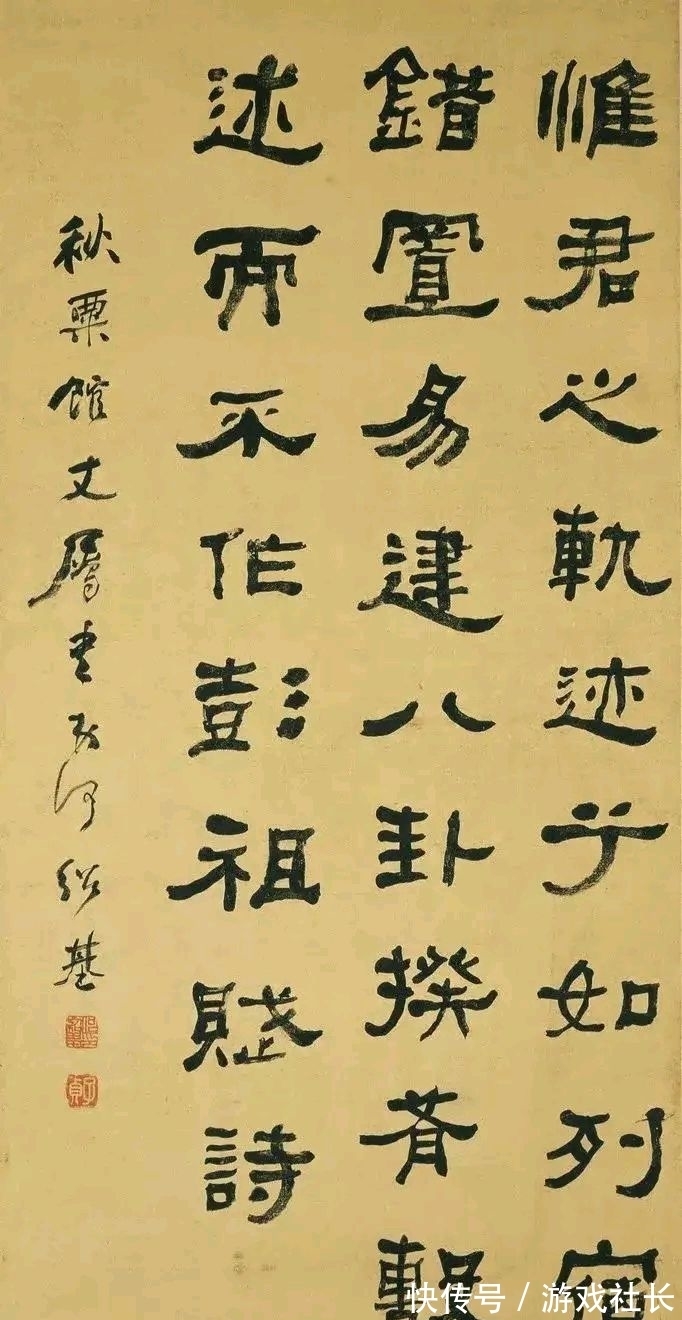 惟君之軌迹兮如列宿
錯置易建八卦揆肴繫
述而不作彭祖賦詩
秋粟館丈屬書弟何紹基
子貞
快传号 / 游戏社长